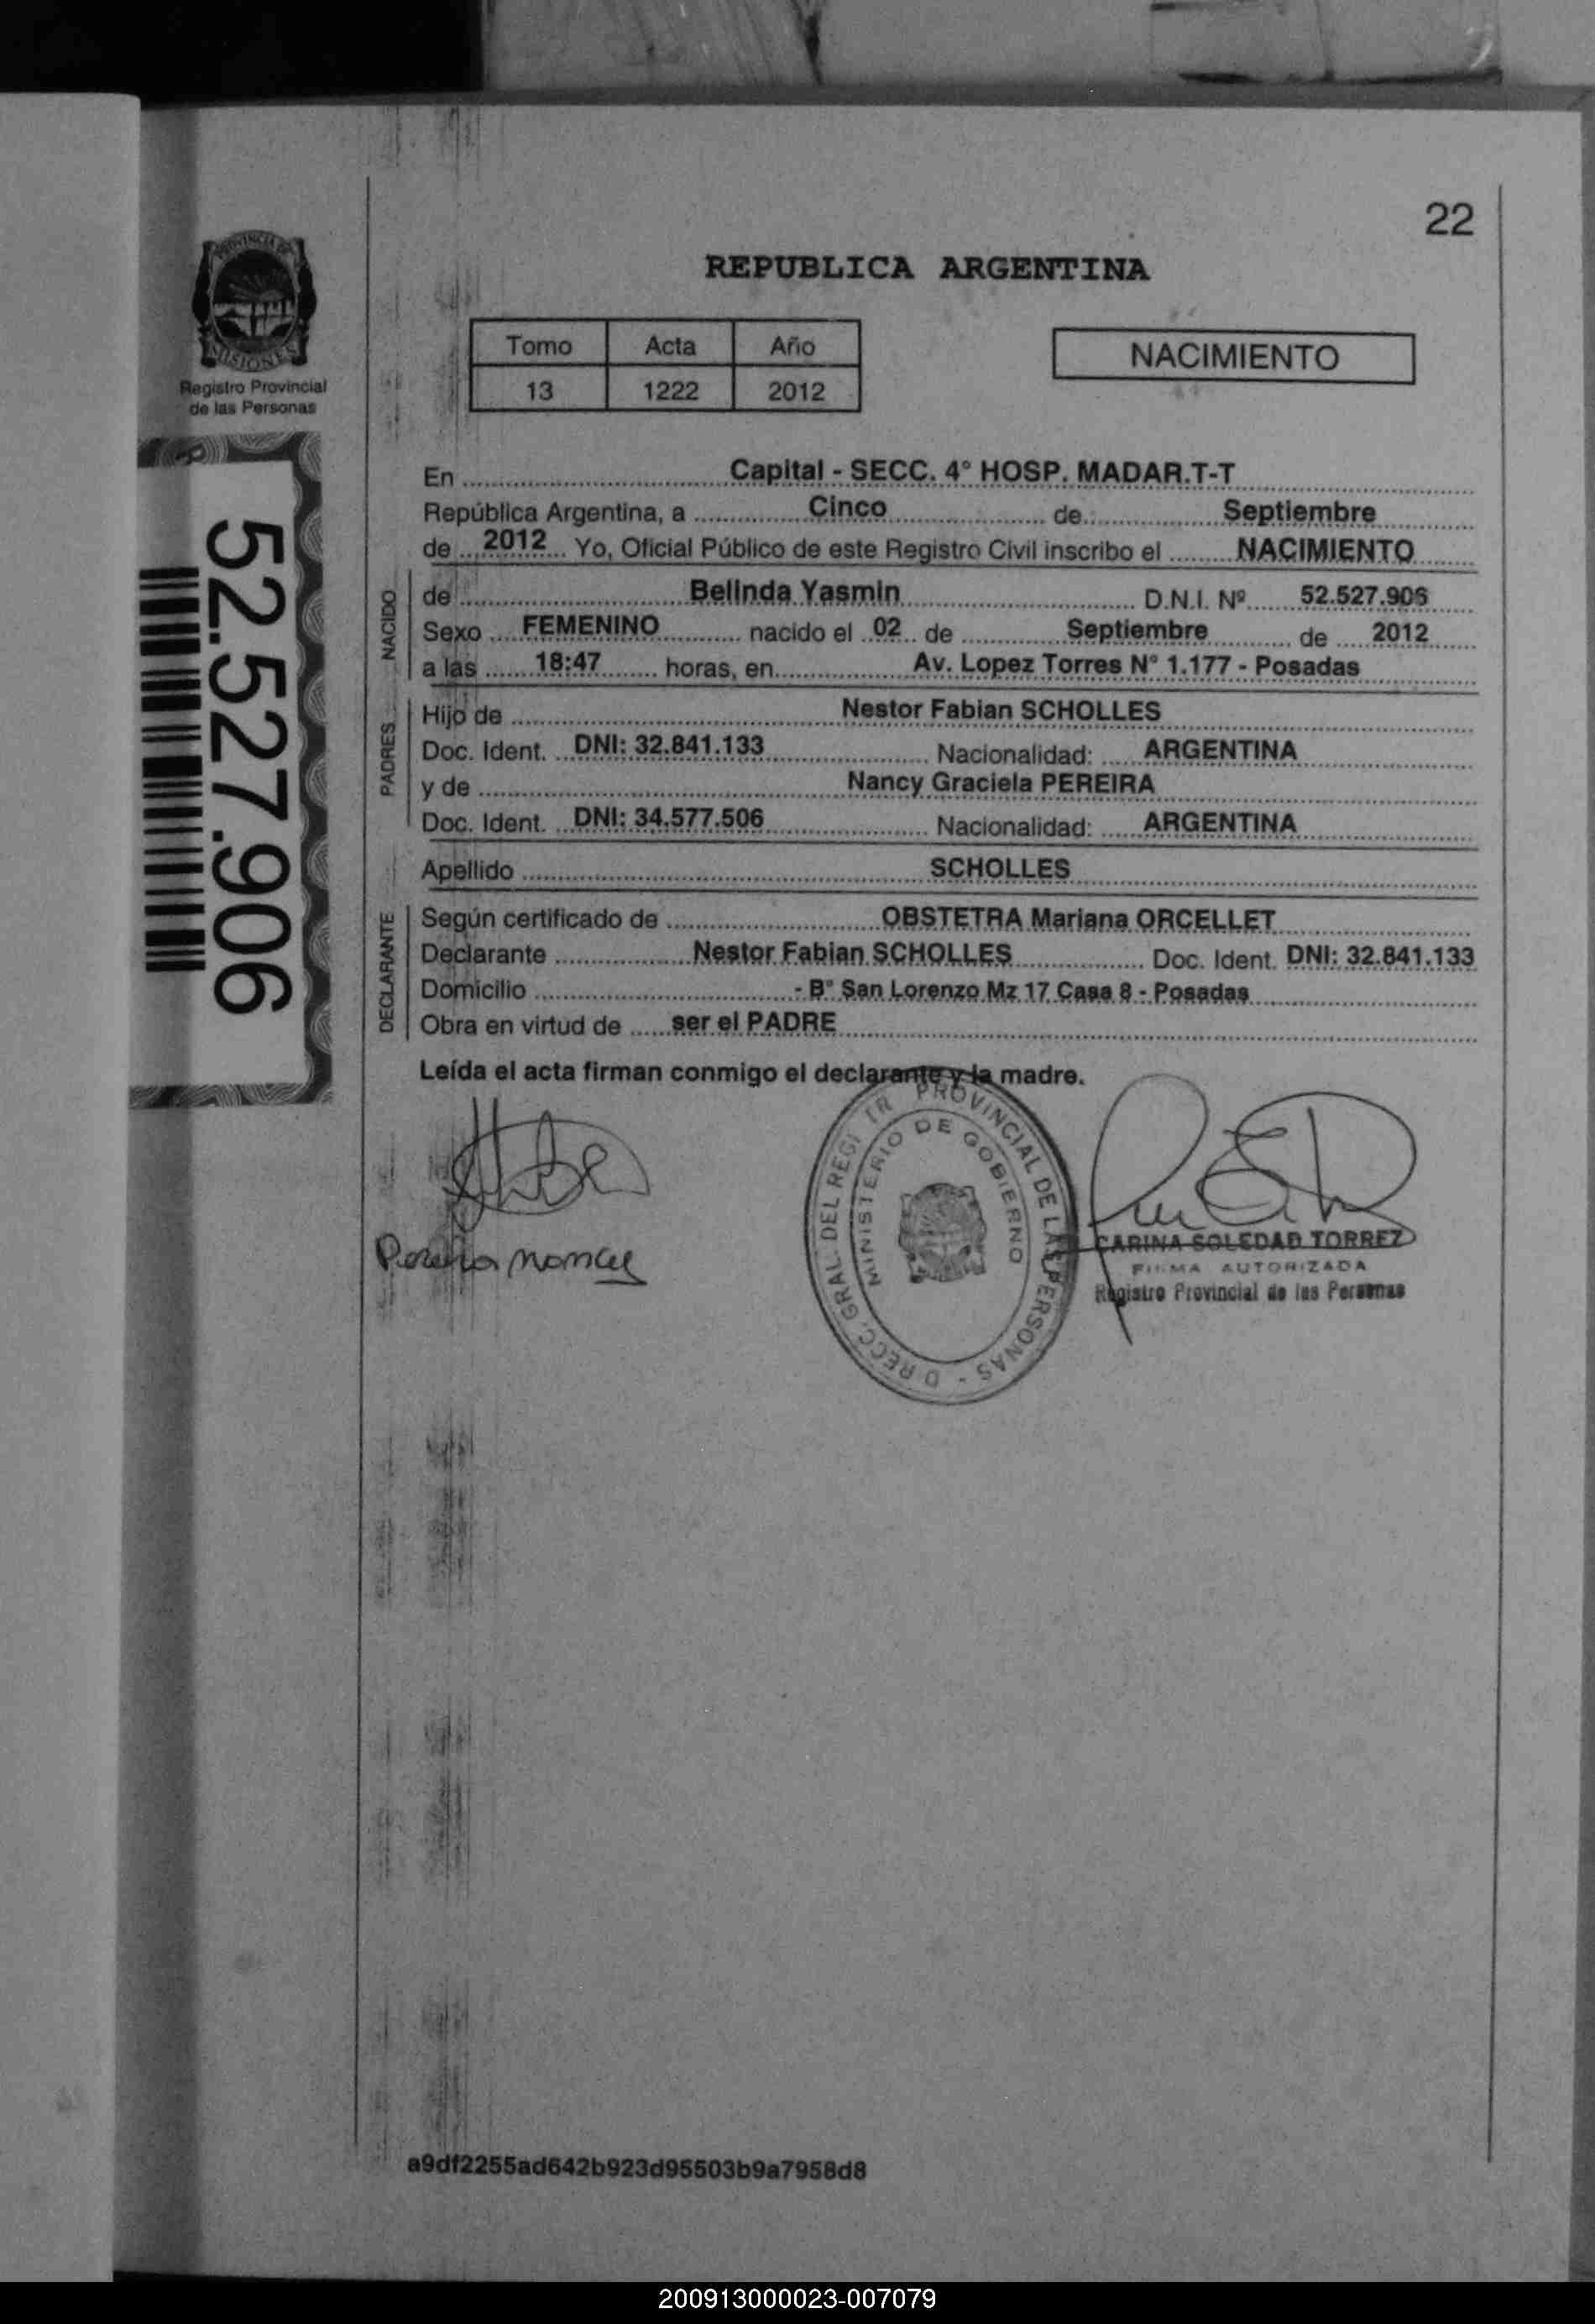 22
PROVINCIA DE
MISIONES
Registro Provincial
de las Personas
REPUBLICA ARGENTINA
Tomo Acta Año
13 1222 2012
NACIMIENTO
52.527.906
En Capital - SECC. 4° HOSP. MADAR.T-T
República Argentina, a Cinco de Septiembre
de 2012 Yo, Oficial Público de este Registro Civil inscribo el NACIMIENTO
NACIDO
de Belinda Yasmin D.N.I. Nº 52.527.906
Sexo FEMENINO nacido el 02 de Septiembre de 2012
a las 18:47 horas, en Av. Lopez Torres N° 1.177 - Posadas
PADRES
Hijo de Nestor Fabian SCHOLLES
Doc. Ident. DNI: 32.841.133 Nacionalidad: ARGENTINA
y de Nancy Graciela PEREIRA
Doc. Ident. DNI: 34.577.506 Nacionalidad: ARGENTINA
Apellido SCHOLLES
DECLARANTE
Según certificado de OBSTETRA Mariana ORCELLET
Declarante Nestor Fabian SCHOLLES Doc. Ident. DNI: 32.841.133
Domicilio - B° San Lorenzo Mz 17 Casa 8 - Posadas
Obra en virtud de ser el PADRE
Leída el acta firman conmigo el declarante y la madre.
Pereira nancy
D RECC. GRAL. DEL REGI TR PROVINCIAL DE LAS PERSONAS -
MINISTERIO DE GOBIERNO
CARINA SOLEDAD TORREZ
FIRMA AUTORIZADA
Registro Provincial de las Personas
a9df2255ad642b923d95503b9a7958d8
200913000023-007079